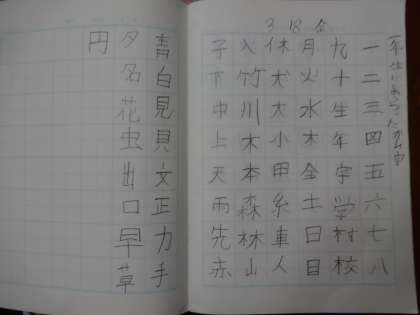 3 18 金
一年生にならったかん字
一二三四五六七八
九十生年字学村校
月火水木金土日目
休犬大小甲糸車人
入竹川木本森林山
子下中上天雨先赤
青白見貝文正力手
夕名花虫出口早草
円